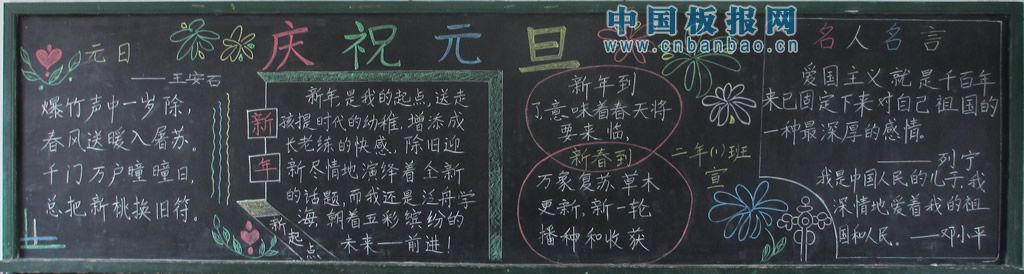 庆祝元旦
中国板报网
www.cnbanbao.cn
元日
——王安石
爆竹声中一岁除,
春风送暖入屠苏。
千门万户曈曈日,
总把新桃换旧符。
新年
新年,是我的起点,送走
孩提时代的幼稚,增添成
长老练的快感。除旧迎
新尽情地演绎着全新
的话题,而我还是泛舟学
海,朝着五彩缤纷的
未来——前进!
新起点
新年到
了,意味着春天将
要来临.
新春到
万象复苏,草木
更新,新一轮
播种和收获
二年(1)班
宣
名人名言
爱国主义就是千百年
来已固定下来对自己祖国的
一种最深厚的感情.
——列宁
我是中国人民的儿子,我
深情地爱着我的祖
国和人民。——邓小平